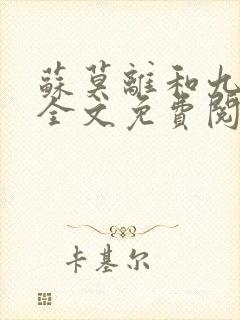 蘇莫離和九
全文免費閱
卡基尔